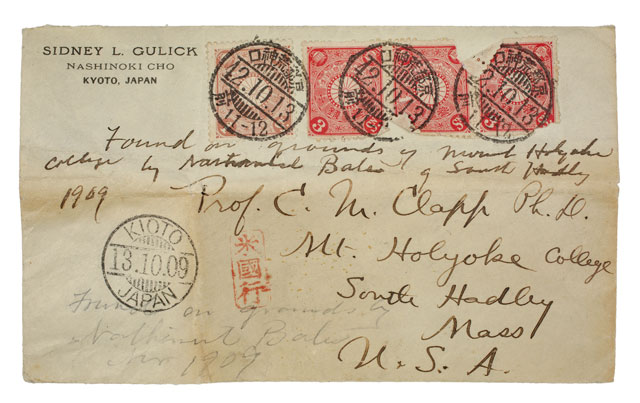 SIDNEY L. GULICK
NASHINOKI CHO
KYOTO, JAPAN
42.10.13
前11-12
42.10.13
42.10.13
3
Found on grounds of Mount Holyoke
College by Nathaniel Bates of South Hadley
1909
Prof. C. M. Clapp Ph. D.
Mt. Holyoke College
South Hadley
Mass
U. S. A.
KIOTO
13.10.09
JAPAN
米國行
Found on grounds by
1909